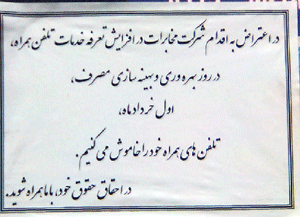 در اعتراض به اقدام شرکت مخابرات در افزایش تعرفه خدمات تلفن همراه،
در روز بهره وری و بهینه سازی مصرف،
اول خرداد ماه،
تلفن های همراه خود را خاموش می کنیم.
در احقاق حقوق خود، با ما همراه شوید.